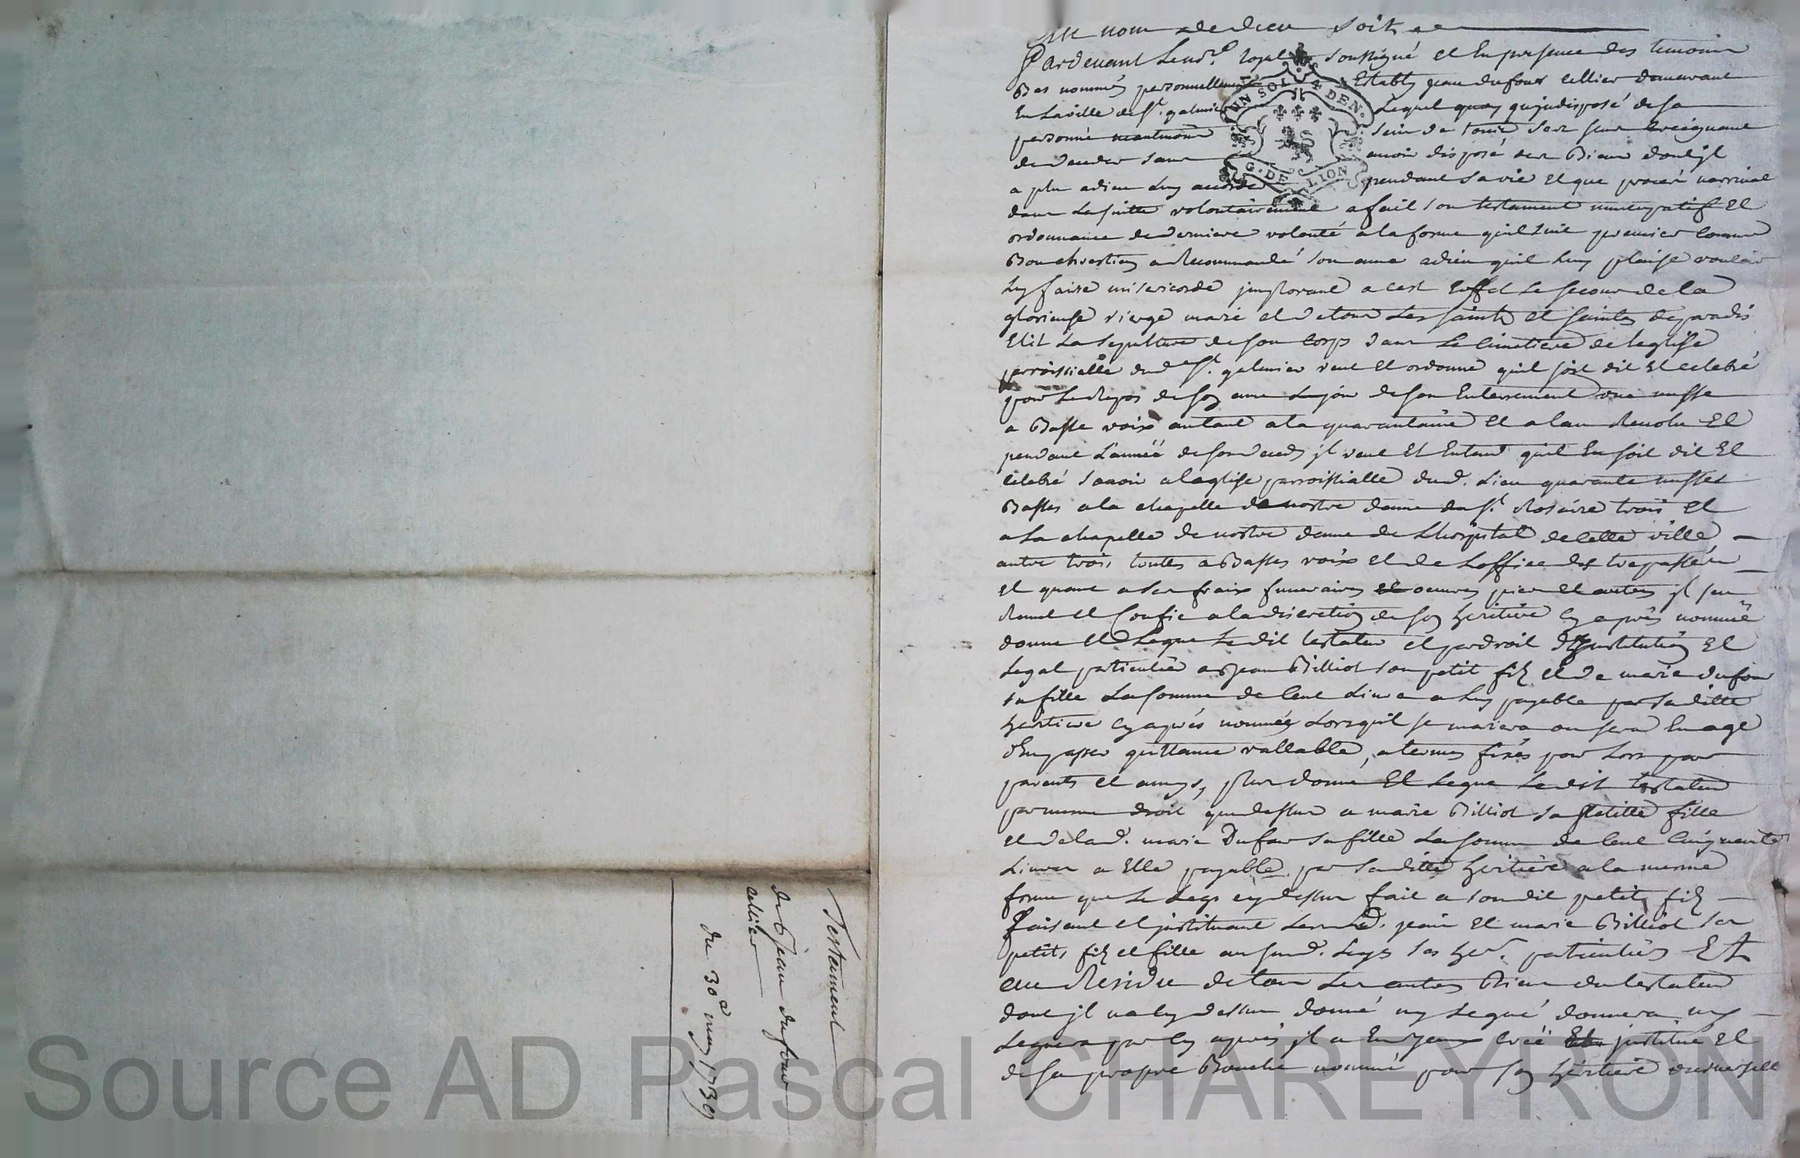 Testament
de Sr jean dufour
cellier
du 30e may 1739
Au nom de dieu soit
Pardevant Le nore royal soussigné et En presence des temoins
Bas nommés personnellement Establi jean dufour cellier demeurant
En La ville de St. galmier Lequel quoy qu'jndisposé de sa
personne neantmoins sein de tous ses sens craignant
de deceder sans avoir disposé des Biens dont jl
a plu a dieu Luy accorder pendant sa vie Et que proces n'arrive
dans La suitte volontairement a fait son testament nuncupatif Et
ordonnance de derniere volonté a la forme quil suit premier comme
Bon chrestien a Recommandé son ame a dieu quil Luy plaise vouloir
Luy faire misericorde jmplorant a cest Effet Le secour de la
glorieuse vierge marie et de tous Les saints et saintes de paradis
Elit La sepulture de son corps dans Le Cimetiere de l'eglise
parroissialle dud St. galmier veut Et ordonne quil soit dit Et celebré
pour Le Repos de son ame Le jour de son Enterrement une messe
a Basse voix autant a la quarantaine Et a l'an Revolu Et
pendant L'année de son deceds jl veut Et Entend quil En soit dit Et
celebré savoir a l'eglise parroissialle dud. Lieu quarante messes
Basses a la chapelle de nostre dame du St Rosaire trois et
a La chapelle de nostre dame de L'hopital de cette ville
autre trois, toutes a Basses voix et de L'office des trepassés
et quant a ses fraix funeraires et oeuvres pies et autres jl s'en
Remet et Confie a la discretion de son heritiere cy apres nommée
donne Et Legue Le dit testateur et par droit d'jnstitution Et
Legat particulier a jean Billiot son petit fils et de marie dufour
sa fille La somme de cent Livres a Luy payable par sa ditte
heritiere cy apres nommée Lorsquil se mariera ou sera En age
d'En passer quittance vallable, a termes fixés pour Lors par
parents et amys, plus donne Et Legue Le dit testateur
par mesme droit que dessus a marie Billiot sa petitte fille
et de lad. marie Dufour sa fille La somme de cent cinquante
Livres a Elle payable par sa ditte heritiere a la mesme
forme que Le Legs cy dessus fait a son dit petit fils
faisant et jnstituant Lesd. jean Et marie Billiot ses
petits fils et fille au susd. Legs ses her. particuliers Et
au Residu de tous Les autres Biens du testateur
dont jl n'a cy dessus donné ny Legué donnera ny
Leguera par cy apres jl a Erigé, creé Et jnstitué Et
de sa propre Bouche nommé pour son heritiere universelle
UN SOL 4 DEN.
G. DE LION
Source AD Pascal CHAREYRON